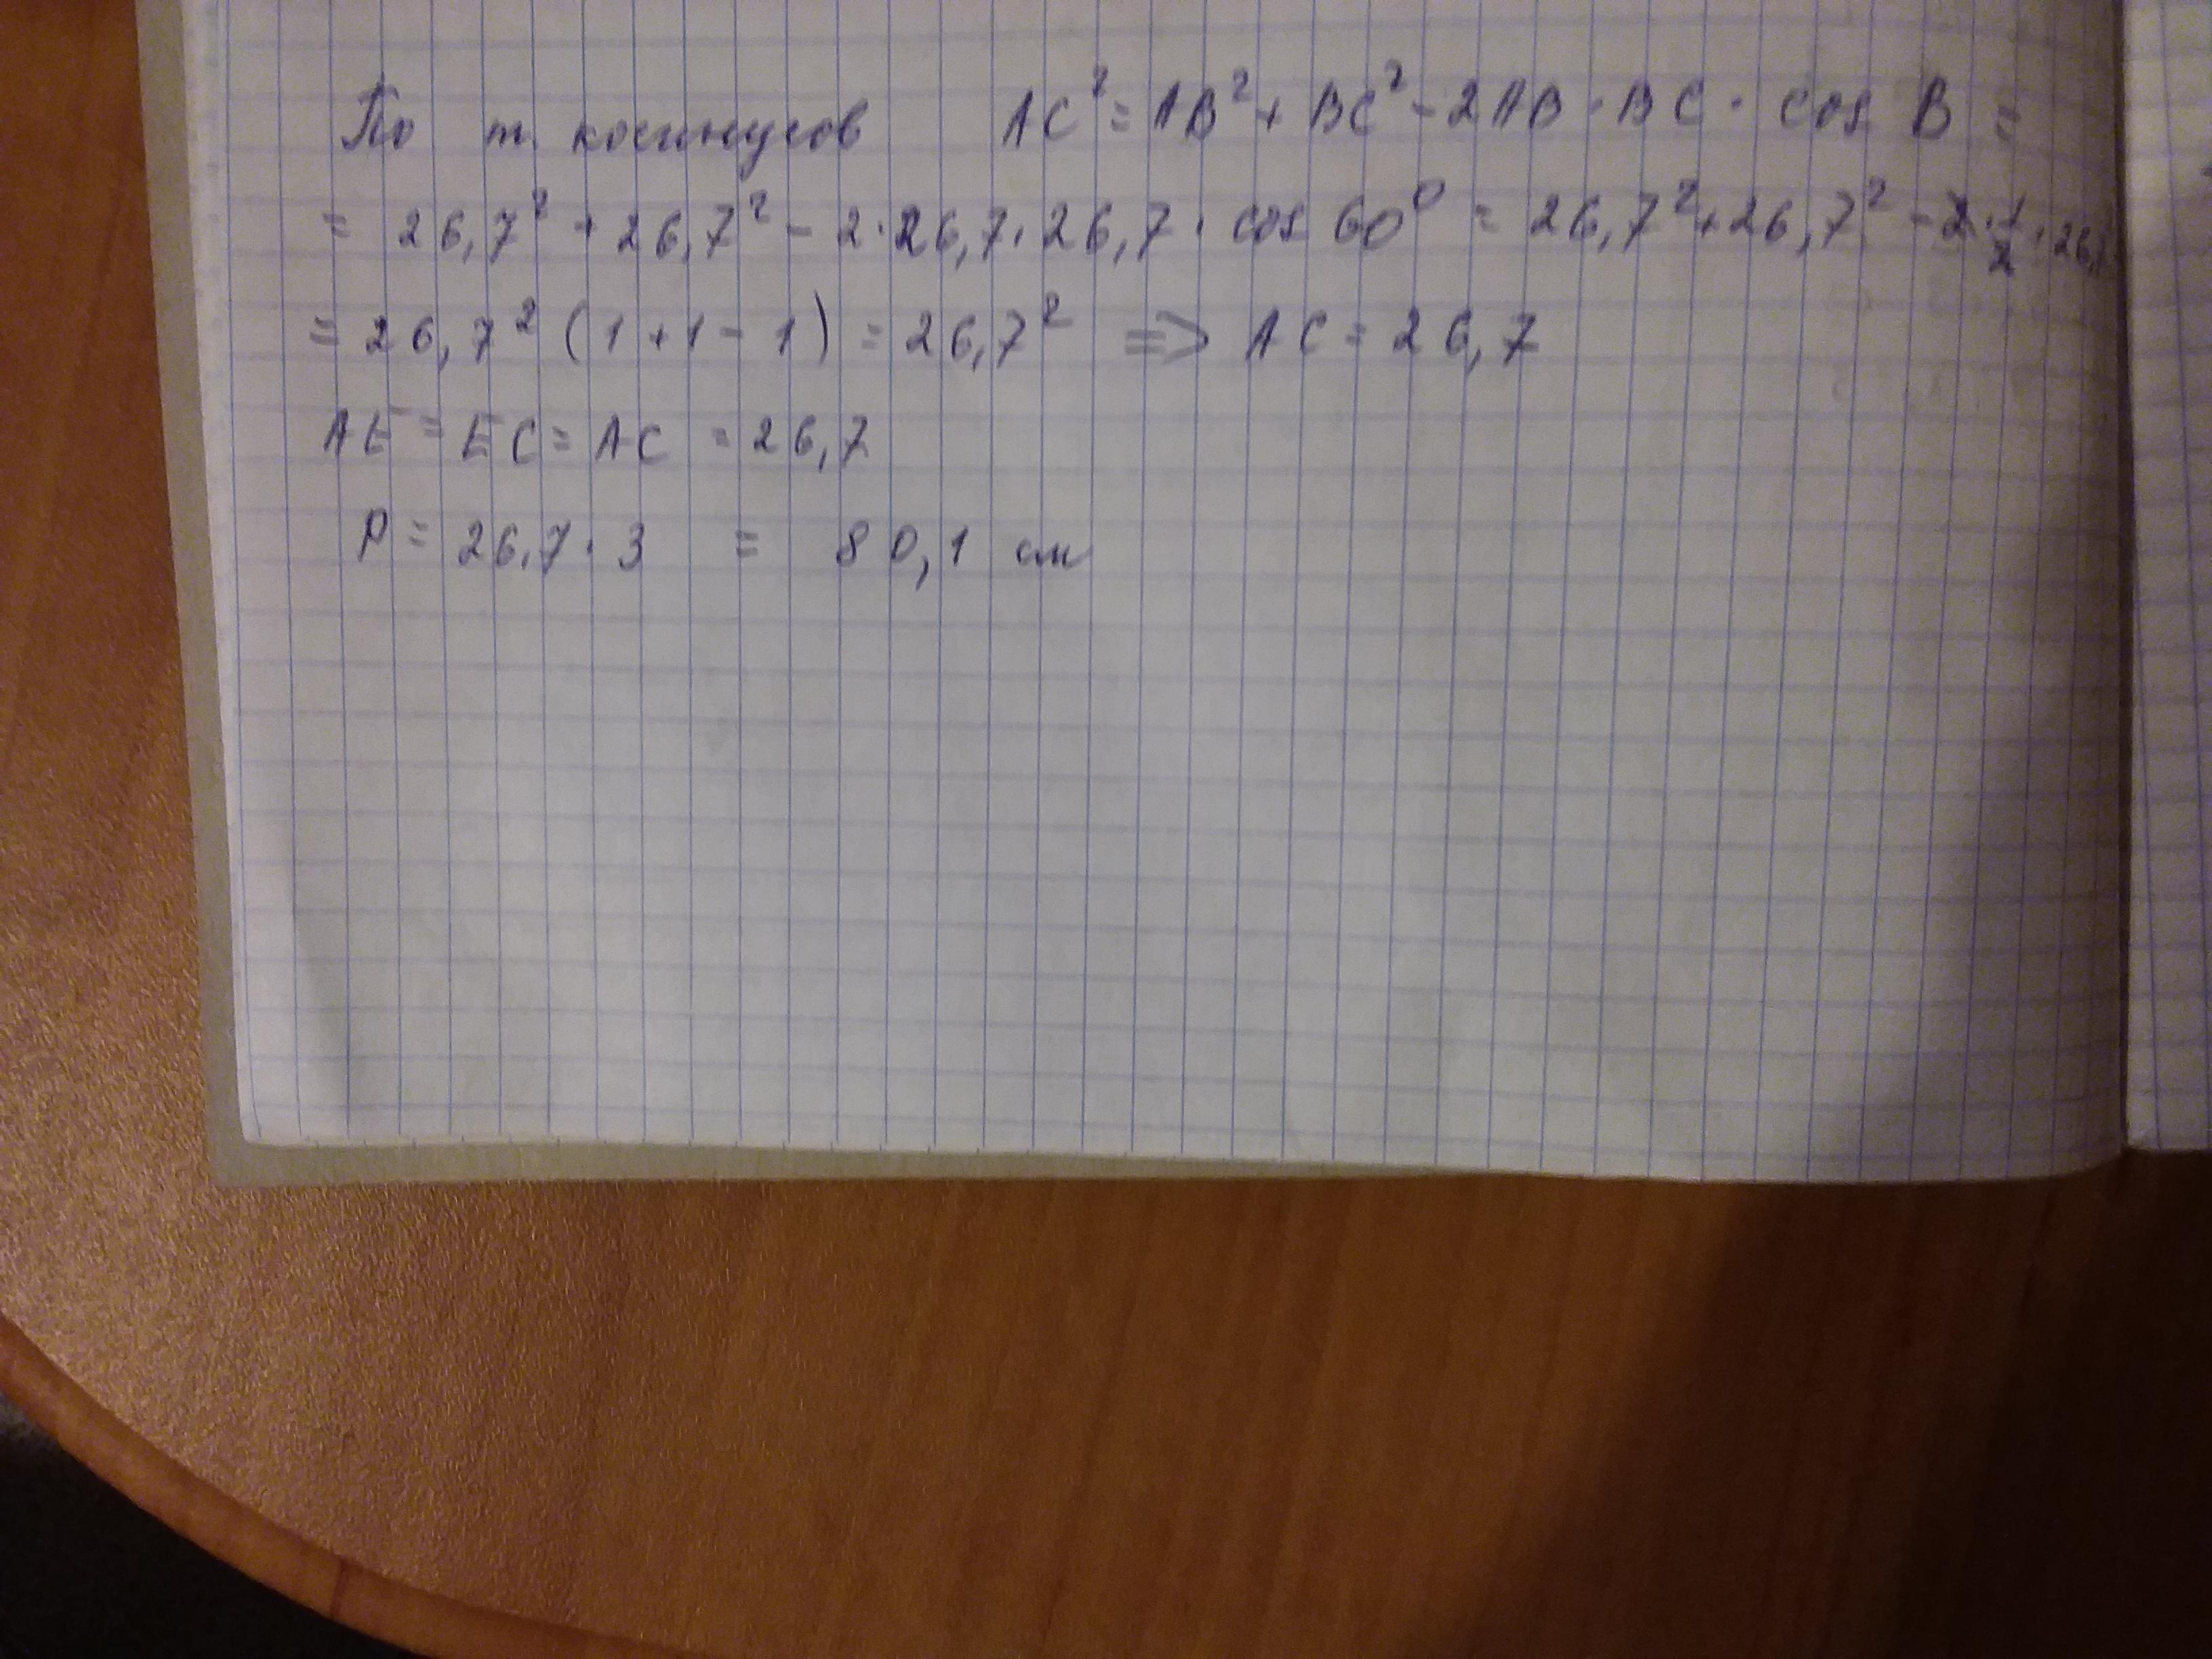 По т. косинусов AC² = AB² + BC² - 2AB · BC · cos B =
= 26,7² + 26,7² - 2 · 26,7 · 26,7 · cos 60⁰ = 26,7² + 26,7² - 2 · 1/2 · 26,
= 26,7² (1 + 1 - 1) = 26,7² => AC = 26,7
AE = EC = AC = 26,7
P = 26,7 · 3 = 80,1 см